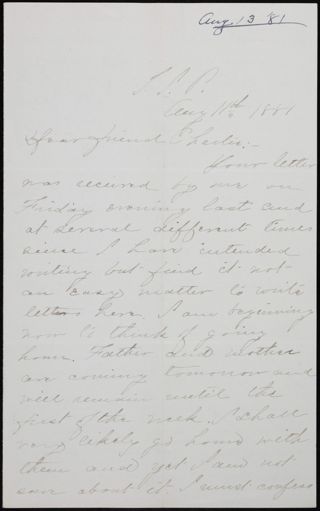 Aug 13 '81
Aug 11th 1881
Dear friend Charlie:-
Your letter
was received by me on
Friday evening last and
at several different times
since I have intended
writing but find it not
an easy matter to write
letters here. I am beginning
now to think of going
home. Father and mother
are coming tomorrow and
will remain until the
first of the week. I shall
very likely go home with
them and yet I am not
sure about it. I must confess